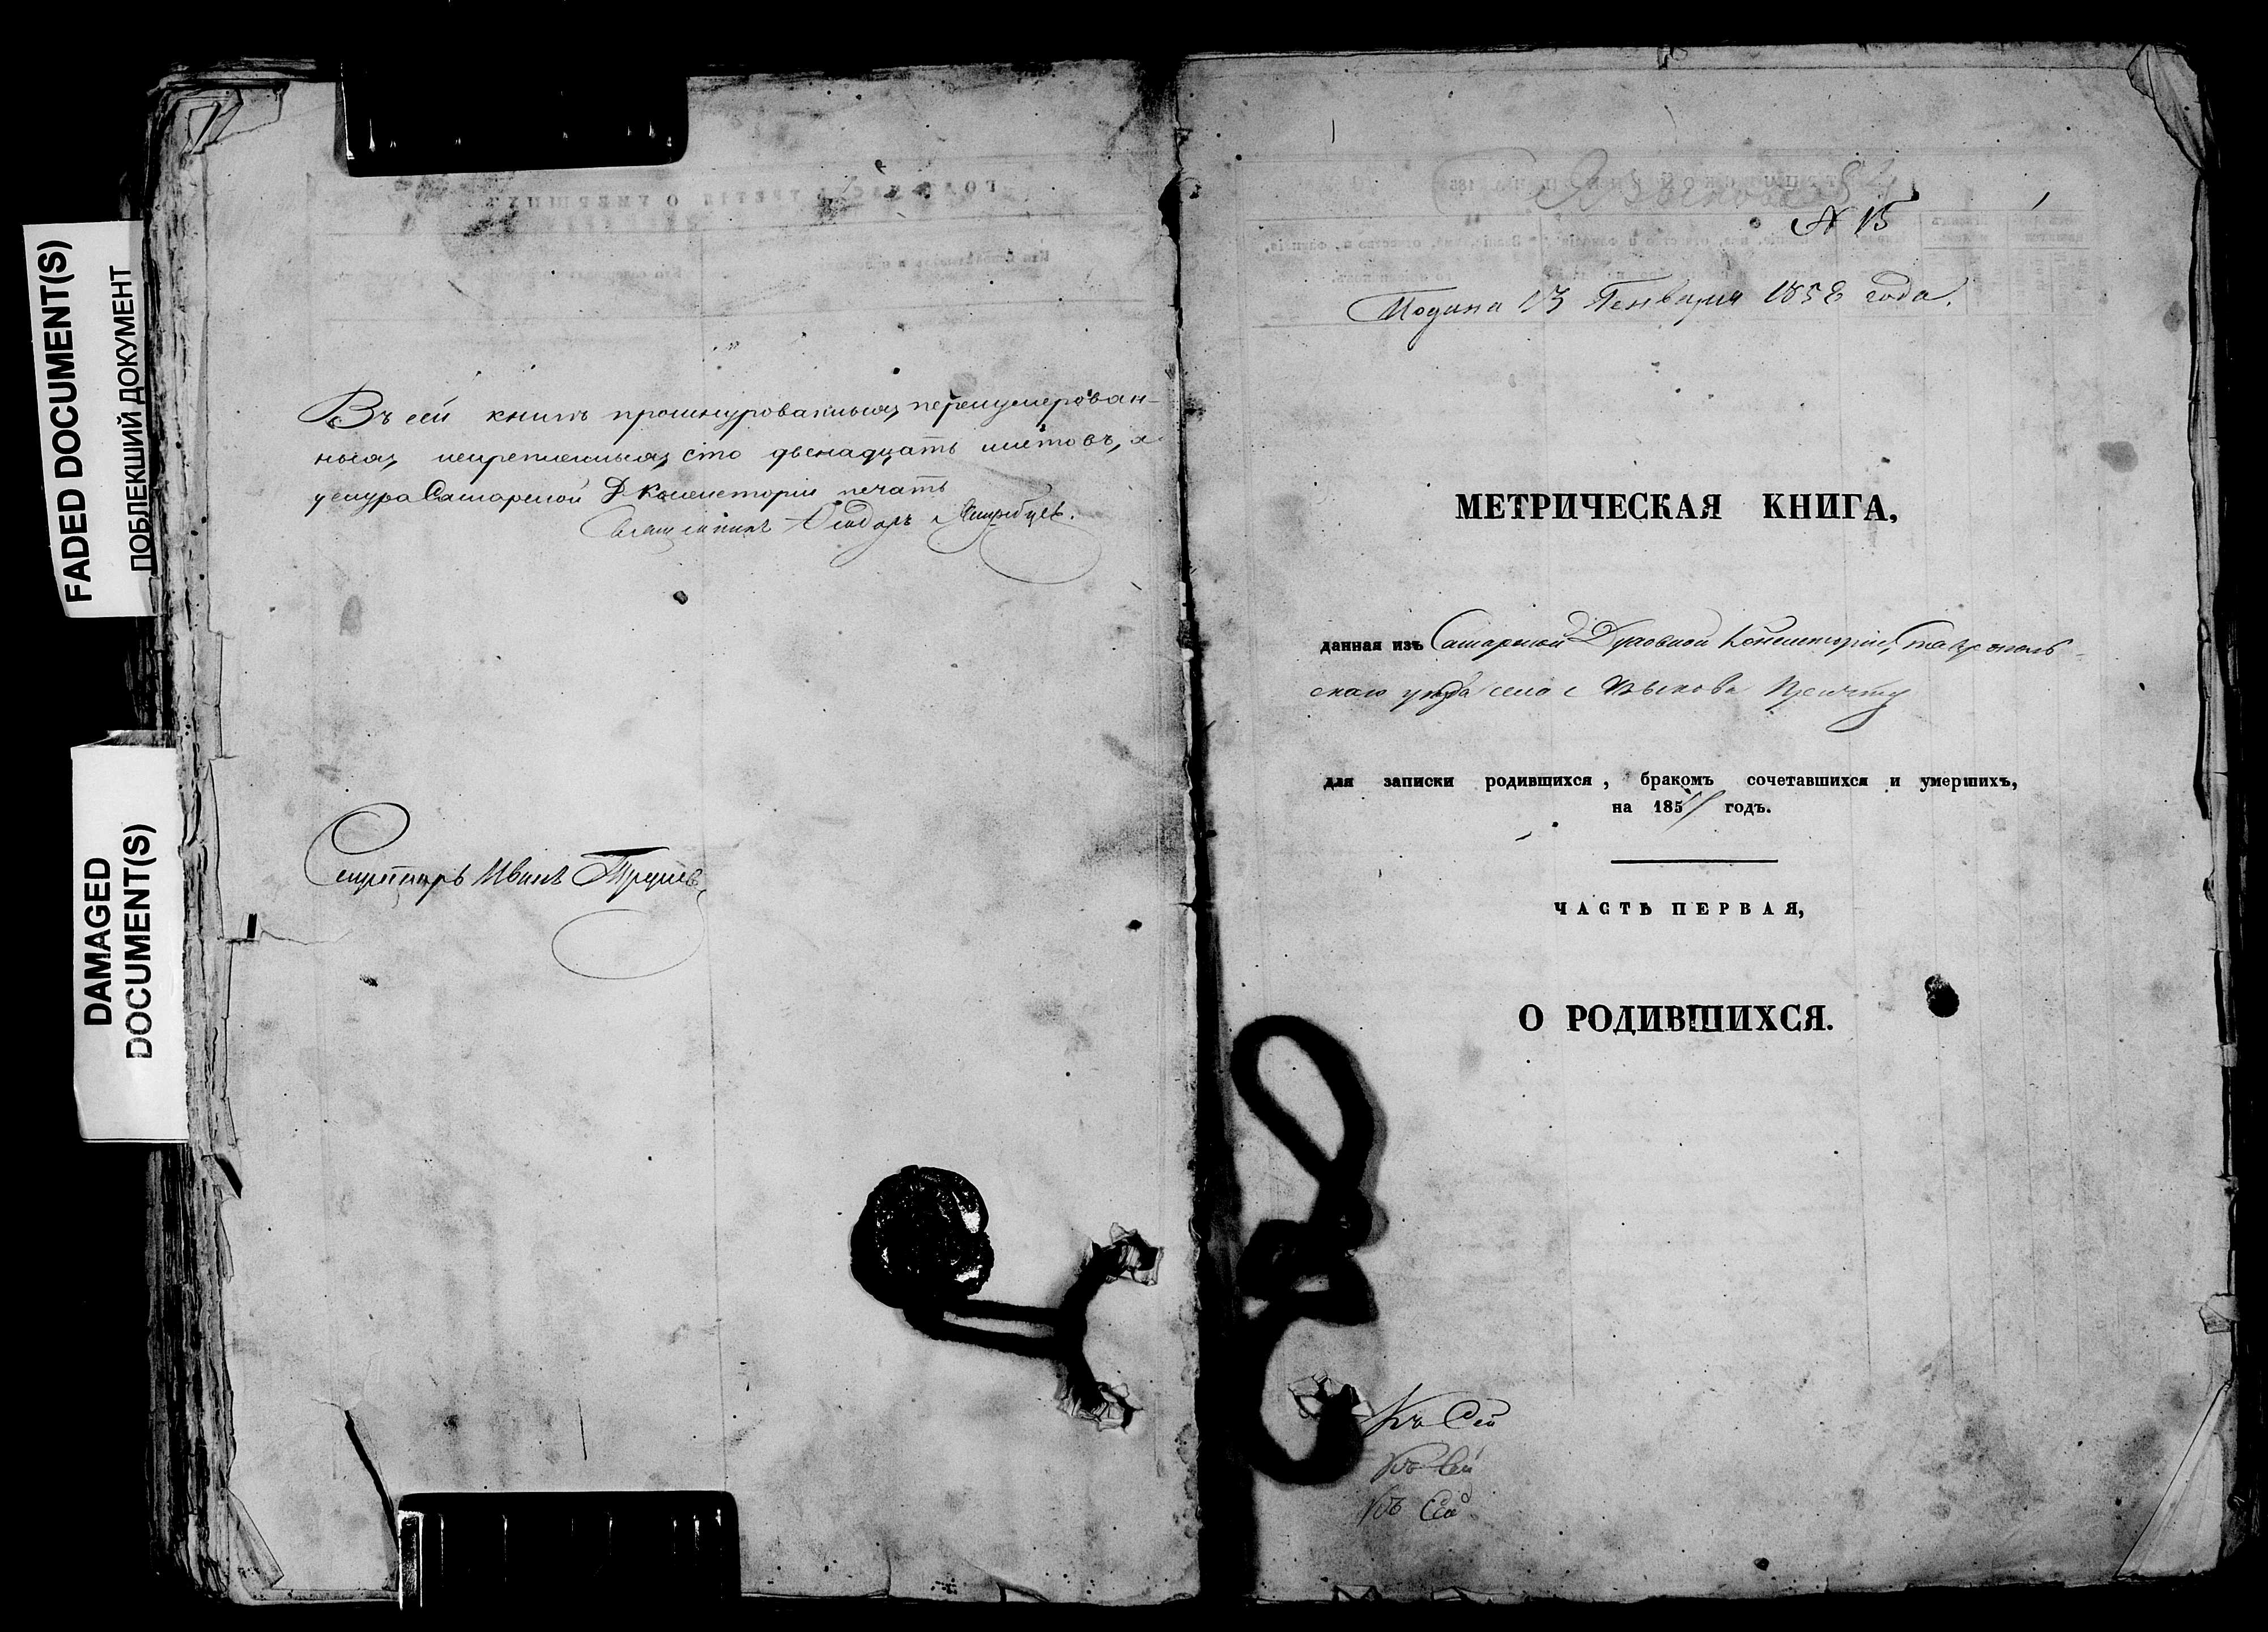 FADED DOCUMENT(S)
ПОБЛЕКШИЙ ДОКУМЕНТ
DAMAGED
DOCUMENT(S)
Въ сей книгѣ прошнурованныхъ, перенумерован-
ныхъ, скрепленныхъ, сто двенадцать листовъ, а
у шнура Самарской Д. Консисторіи печать
Священникъ Ѳеодоръ
Секретарь Иванъ
№ 15
Подана 13 Генваря 1858 года.
МЕТРИЧЕСКАЯ КНИГА,
данная изъ Самарской Духовной Консисторіи, Ставрополь-
скаго уѣзда села Языкова Причту
для записки родившихся, бракомъ сочетавшихся и умершихъ,
на 185 годъ.
ЧАСТЬ ПЕРВАЯ,
О РОДИВШИХСЯ.
Къ Сей
Къ Сей
Къ Сей